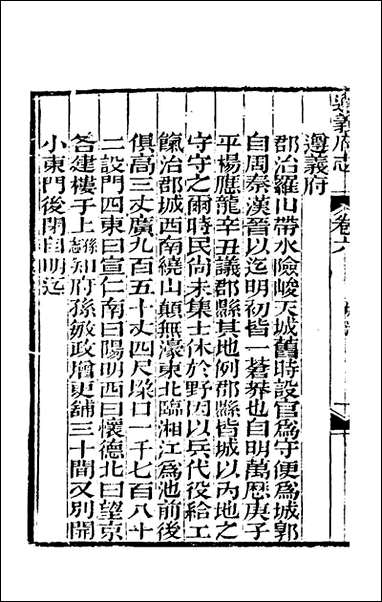 遵義府志
卷六
遵義府
郡治羅山帶水險峻天城舊時設官爲守便爲城郭
自周秦漢晉以迄明初皆一莽莽也自明萬厯庚子
平楊應龍辛丑議郡縣其地例郡縣皆城以內地之
守守之爾時民尚未集士休於野因以兵代役給工
餼治郡城西南繞山顚無濠東北臨湘江爲池前後
俱高三丈廣九百五十丈四尺垜口一千七百八十
二設門四東曰宣仁南曰陽明西曰懷德北曰望京
各建樓于上孫志知府孫敏政增更舖三十間又別開
小東門後閉自明迄